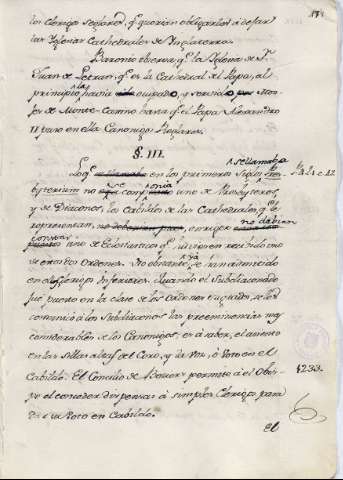 los Clerigos Seglares, qe querian obligarlos à dejar
las Iglesias Cathedrales de Inglaterra.
Baronio observa qe la Iglesia de Sn
Juan de Letran, qe es la Cathedral del Papa, al
principio la havia ocupado, y servido Mon-
jes de Monte-Casino hasta qe el Papa Alexandro
II puso en ella Canonigos Reglares.
§. III.
Lo qe se llamaba en los primeros Siglos Pres-
byterium no se componia sino de Presbyteros,
y de Diaconos; los Cabildos de las Cathedrales, qe le
representan, no debian
sino de Eclesiasticos qe uviesen recivido uno
de estos dos Ordenes. No obstante se han admitido
en ellos Clerigos Inferiores. Quando el Subdiaconado
fue puesto en la clase de los Ordenes sagrados se les
comunicó à los Subdiaconos las preeminencias mas
considerables de los Canonigos; es à saber, el asiento
en las Sillas altas del Coro, y la Voz, ò Voto en el
Cabildo. El Concilio de permite à el Obis-
pe el conceder dispensas à simples Clerigos para
voto en Cabildo.
1233.
el